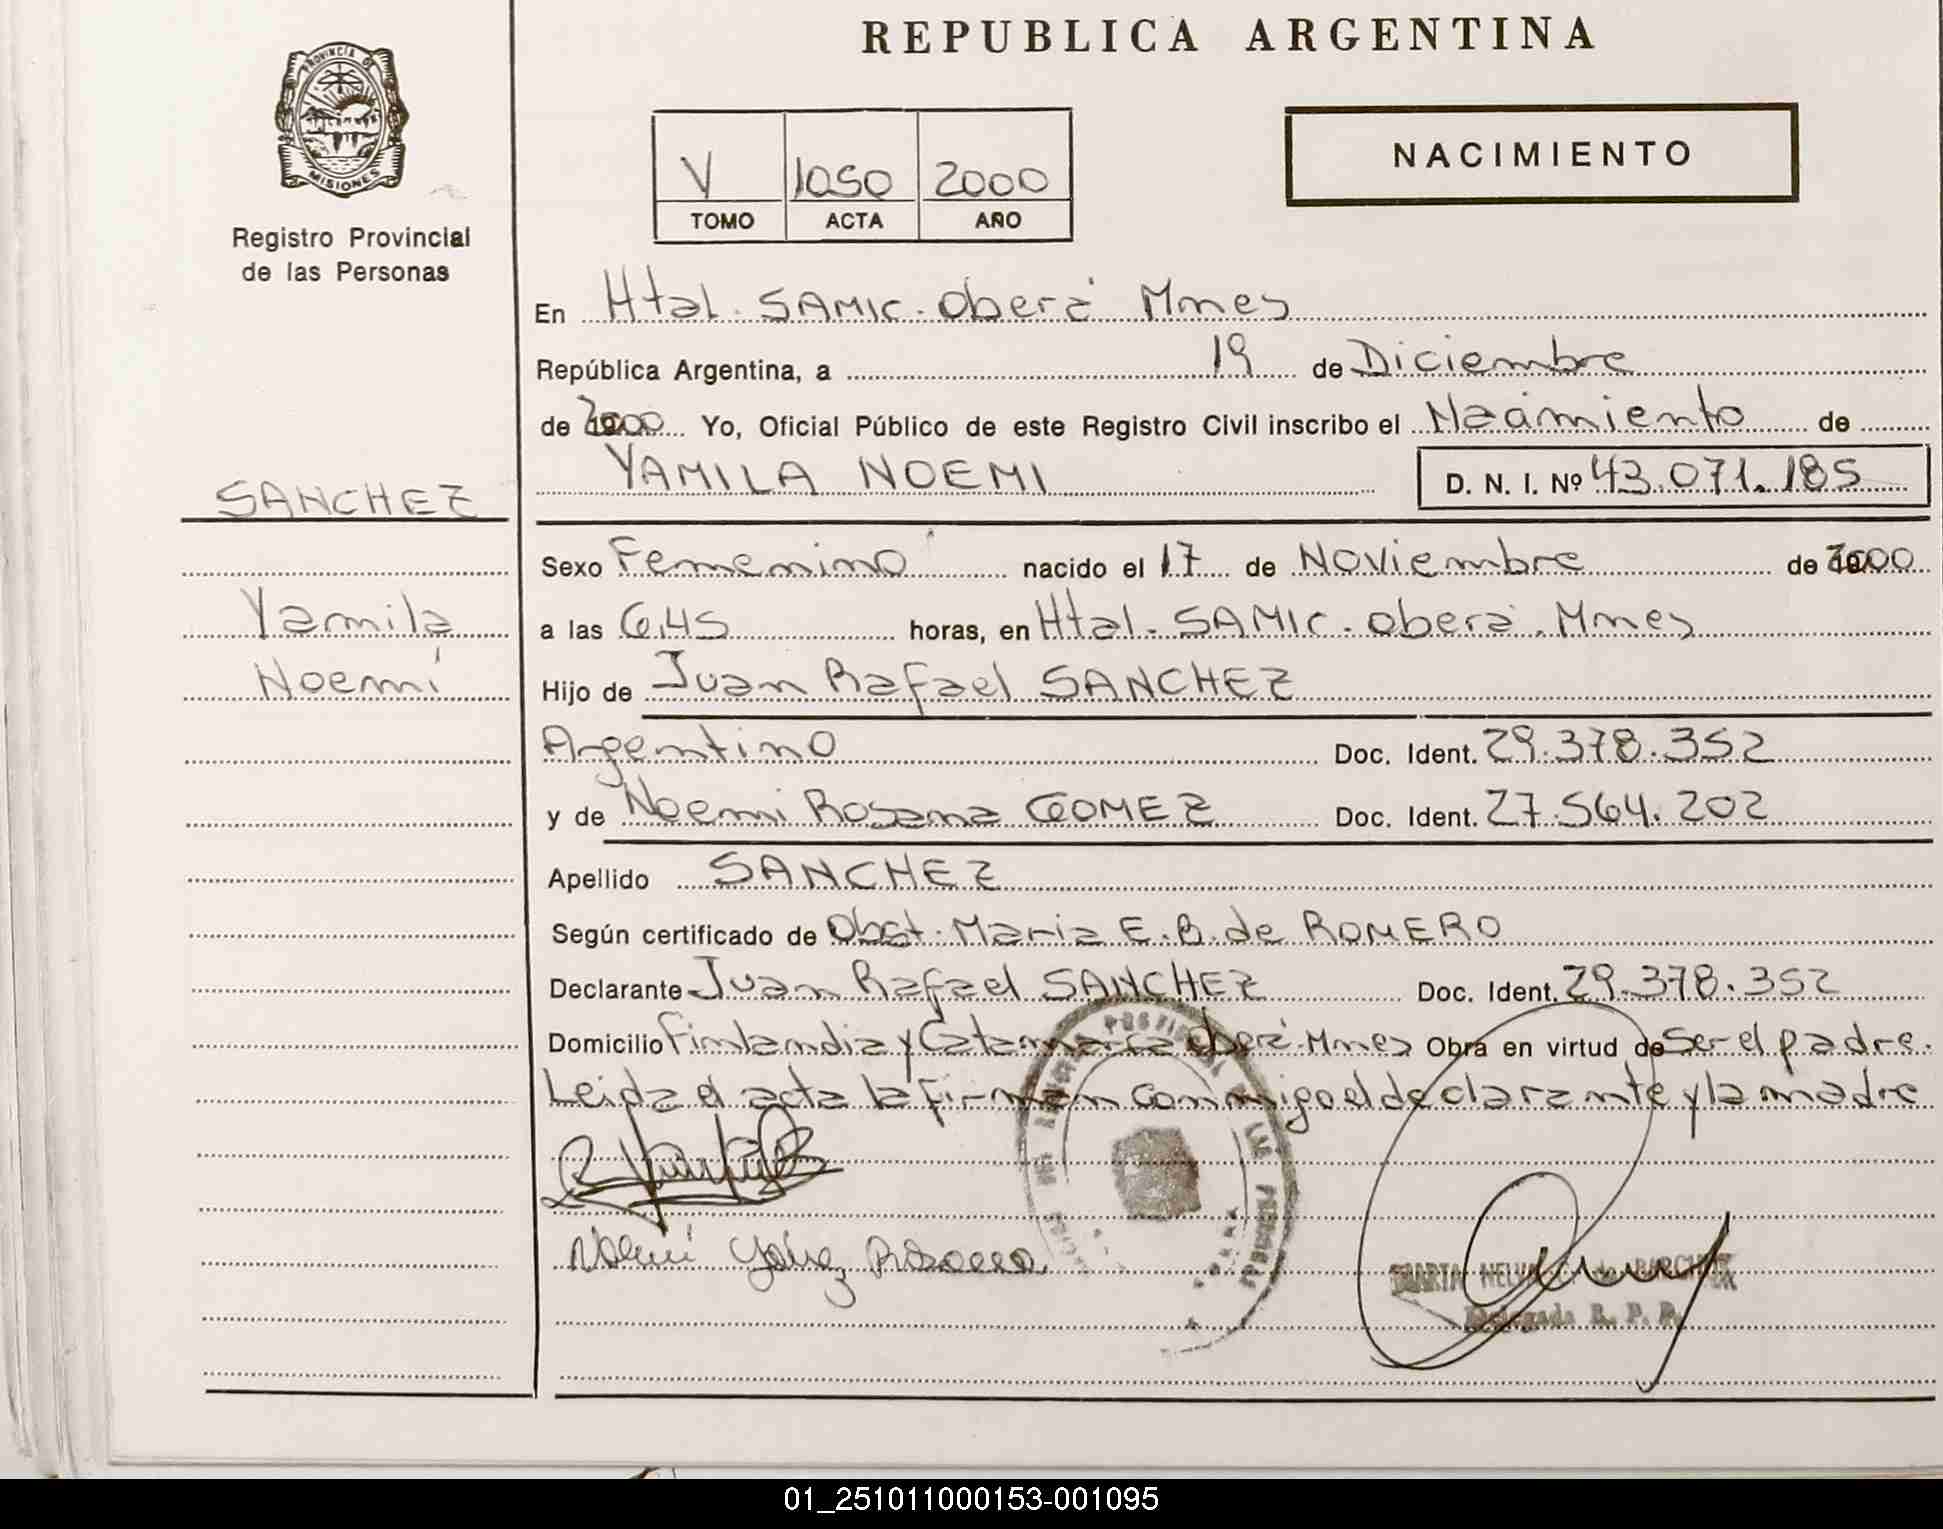 REPUBLICA ARGENTINA
PROVINCIA DE
MISIONES
Registro Provincial
de las Personas
V 1050 2000
TOMO ACTA AÑO
NACIMIENTO
En Htal. SAMIC. Oberá Mnes
República Argentina, a 19 de Diciembre
de 2000 Yo, Oficial Público de este Registro Civil inscribo el Nacimiento de
YAMILA NOEMI D. N. I. Nº 43.071.185
SANCHEZ
Yamila
Noemí
Sexo Femenino nacido el 17 de Noviembre de 2000
a las 6,45 horas, en Htal. SAMIC. Oberá. Mnes
Hijo de Juan Rafael SANCHEZ
Argentino Doc. Ident. 29.378.352
y de Noemi Rosana GOMEZ Doc. Ident. 27.564.202
Apellido SANCHEZ
Según certificado de Obst. Maria E. B. de ROMERO
Declarante Juan Rafael SANCHEZ Doc. Ident. 29.378.352
Domicilio Finlandia y Catamarca Oberá. Mnes Obra en virtud de Ser el padre.
Leida el acta la firman conmigo el declarante y la madre
Delegada R. P. P.
01_251011000153-001095